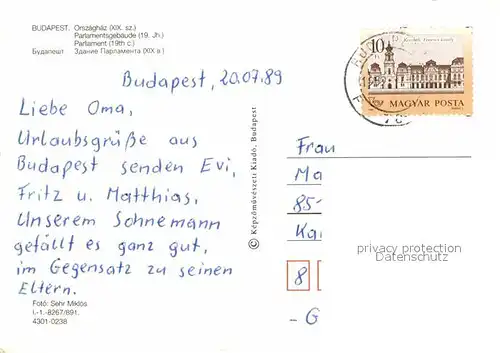 BUDAPEST. Országház (XIX. sz.)
Parlamentsgebäude (19. Jh.)
Parliament (19th c.)
Будапешт Здание Парламента (XIX в.)
Budapest, 20.07.89
Liebe Oma,
Urlaubsgrüße aus
Budapest senden Evi,
Fritz u. Matthias.
Unserem Sohnemann
gefällt es ganz gut,
im Gegensatz zu seinen
Eltern.
Fotó: Sehr Miklós
I.-1.-8267/891.
4301-0238
© Képzőművészeti Kiadó, Budapest
10
MAGYAR POSTA
Frau
Ma
85-
Kai
8
- G
privacy protection
Datenschutz